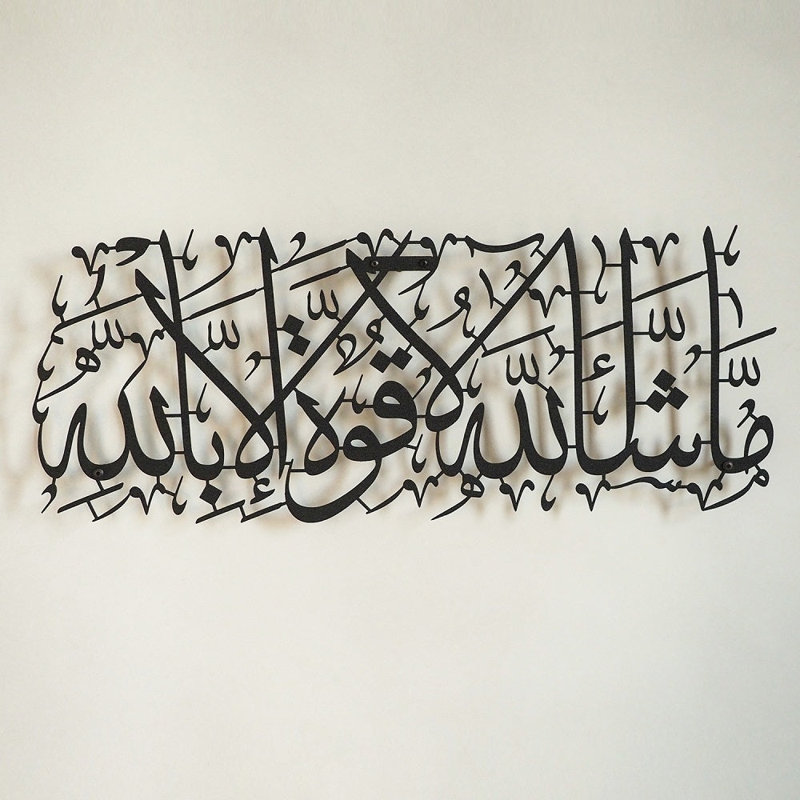 مَّا شَاءَ اللّٰهُ لَا قُوَّةَ إِلَّا بِاللّٰهِ